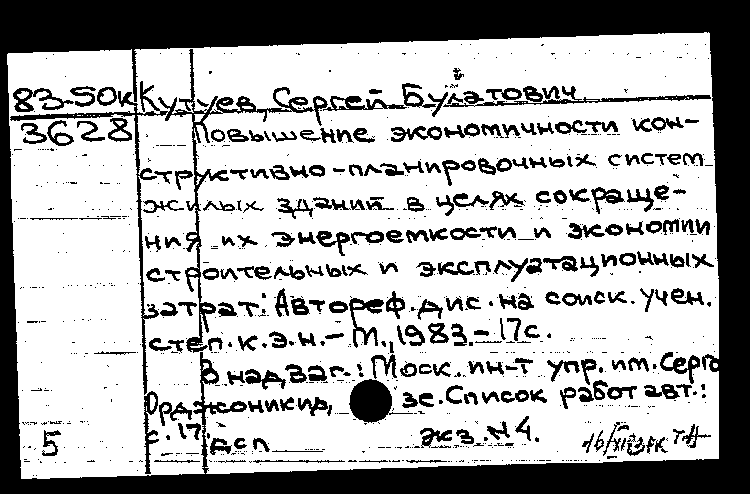 83-50к Кутуев, Сергей Булатович
3628 Повышение экономичности кон-
структивно-планировочных систем
жилых зданий в целях сокраще-
ния их энергоемкости и экономии
строительных и эксплуатационных
затрат: Автореф. дис. на соиск. учен.
степ. к. э. н. - М., 1983. - 17 с.
В надзаг.: Моск. ин-т упр. им. Серго
Орджоникид, зе. Список работ авт.:
с. 17.
5 дсп экз. N 4.